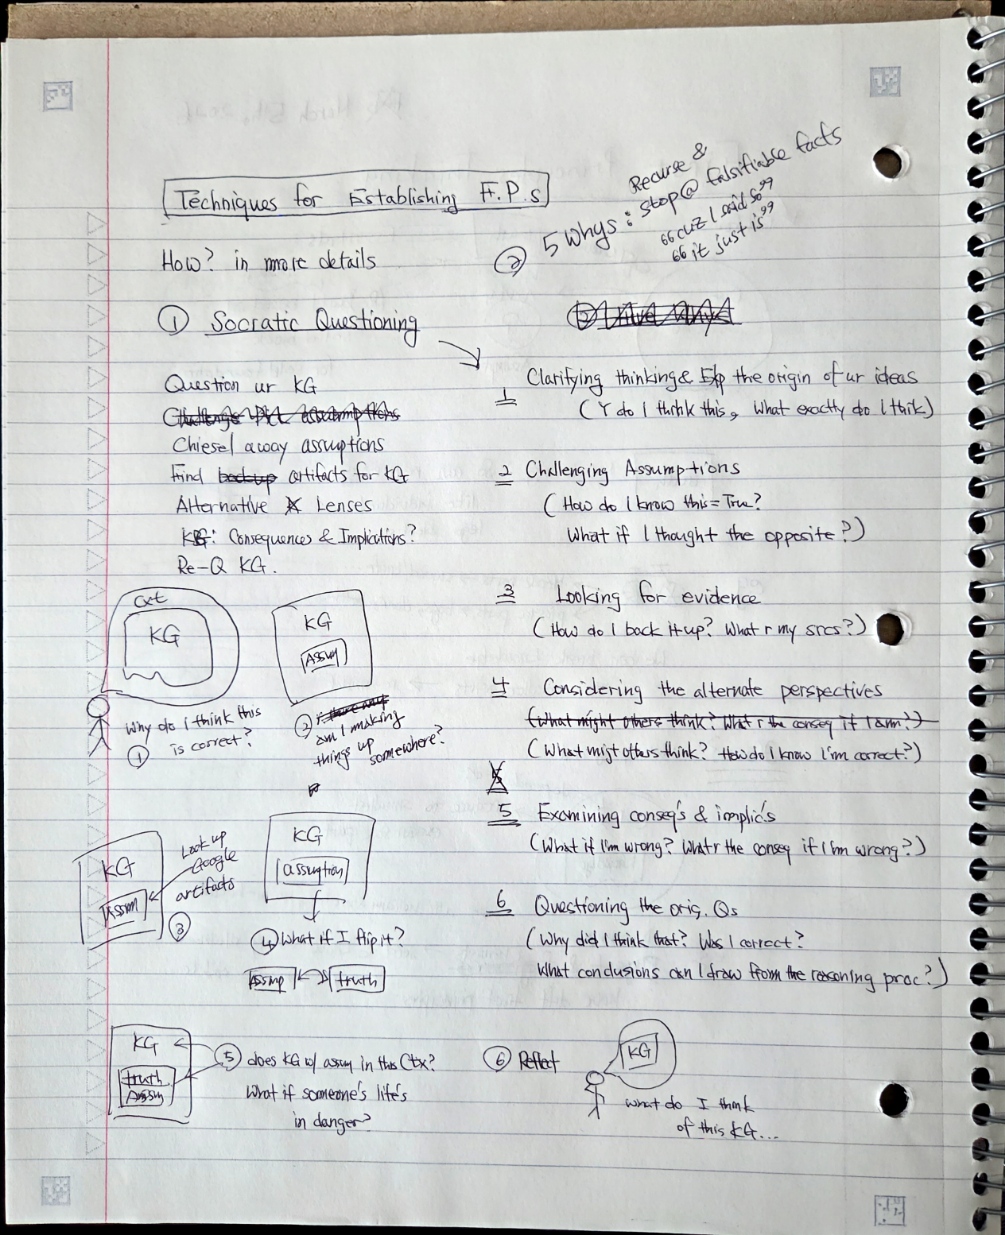 Techniques for Establishing F.P.s
How? in more details
② 5 whys: Recurse &
stop@ falsifiable facts
"cuz I said so"
"it just is"
① Socratic Questioning
Question ur KG
Chiesel away assuptions
Find backup artifacts for KG
Alternative Lenses
KG: Consequences & Implications?
Re-Q KG.
1 Clarifying thinking & Exp the origin of ur ideas
(Y do I think this, What exactly do I thik)
2 Challenging Assumptions
(How do I know this = True?
What if I thought the opposite?)
3 Looking for evidence
(How do I back it up? What r my srcs?)
4 Considering the alternate perspectives
(What might others think? What r the conseq if I am?)
(What migt others think? How do I know I'm correct?)
5 Examining conseq's & implic's
(What if I'm wrong? What r the conseq if I'm wrong?)
6 Questioning the orig. Qs
(Why did I think that? Was I correct?
What conclusions can I draw from the reasoning proc?)
Cxt
KG
Why do I think this
is correct?
①
KG
Assum
② am I making
things up somewhere?
KG
Assm
Look up
Google
artifacts
③
KG
assumtion
④ What if I flip it?
Assmp truth
KG
truth
Assm
⑤ does KG w/ assm in this Ctx?
What if someone's life's
in danger?
⑥ Reflect
KG
what do I think
of this KG...